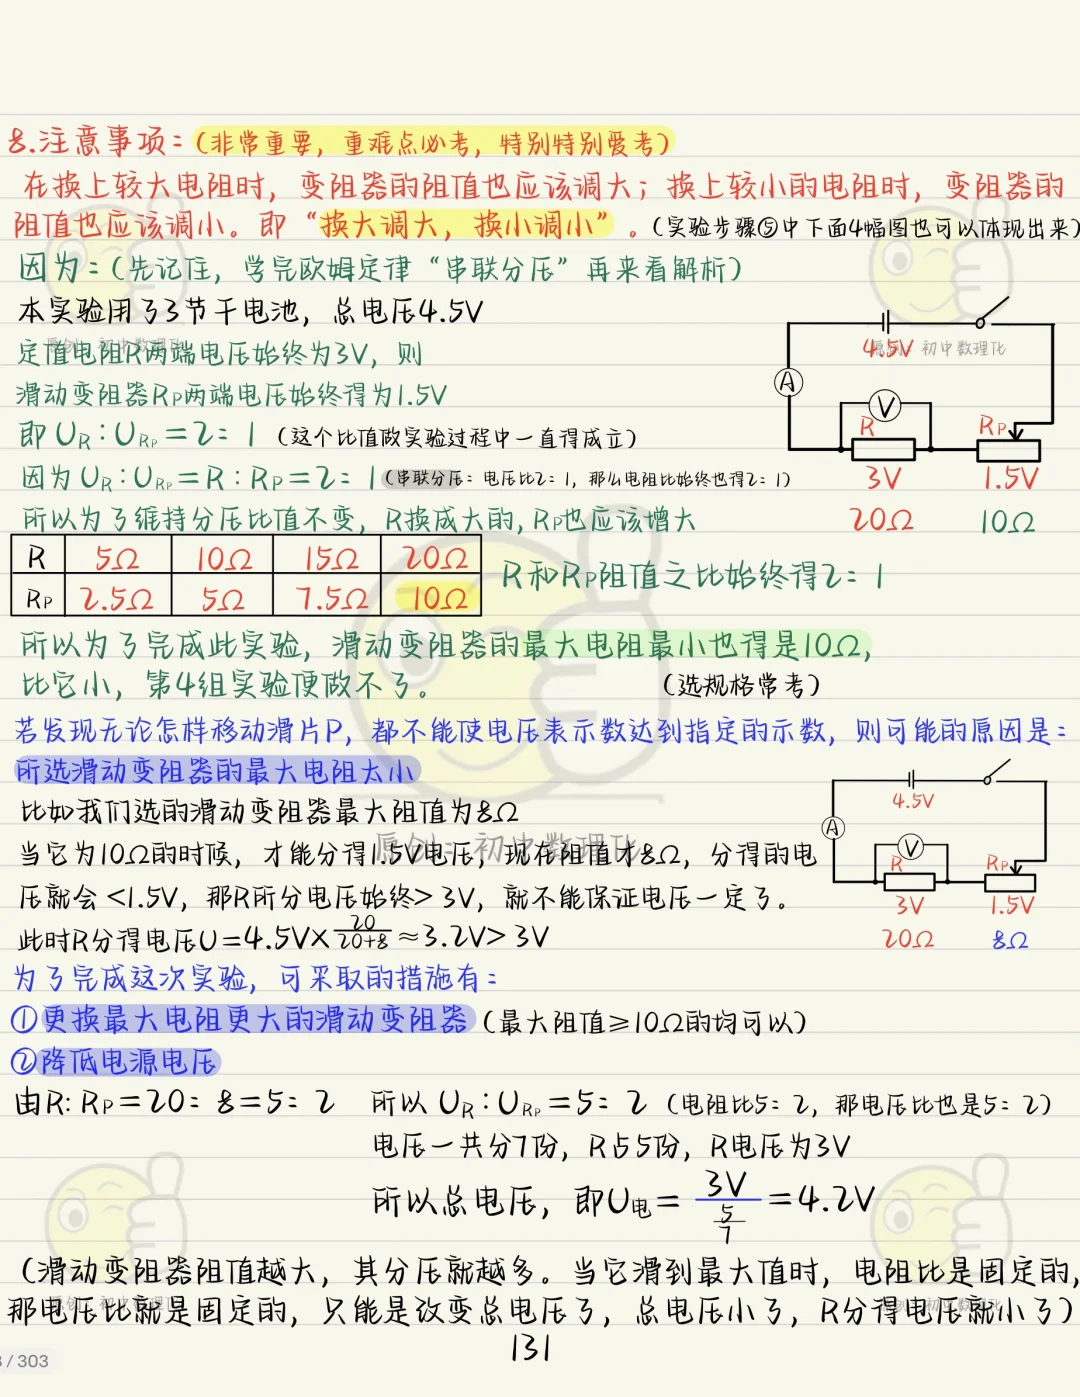 8.注意事项:(非常重要，重难点必考，特别特别爱考)
在换上较大电阻时，变阻器的阻值也应该调大；换上较小的电阻时，变阻器的
阻值也应该调小。即“换大调大，换小调小”。(实验步骤⑤中下面4幅图也可以体现出来)
因为:(先记住，学完欧姆定律“串联分压”再来看解析)
本实验用了3节干电池，总电压4.5V
定值电阻R两端电压始终为3V，则
滑动变阻器RP两端电压始终得为1.5V
即UR:URP=2:1(这个比值做实验过程中一直得成立)
因为UR:URP=R:RP=2:1(串联分压:电压比2:1，那么电阻比始终也得2:1)
所以为了维持分压比值不变，R换成大的，RP也应该增大
4.5V
A
V
R
RP
3V 1.5V
20Ω 10Ω
R 5Ω 10Ω 15Ω 20Ω
RP 2.5Ω 5Ω 7.5Ω 10Ω
R和RP阻值之比始终得2:1
所以为了完成此实验，滑动变阻器的最大电阻最小也得是10Ω，
比它小，第4组实验便做不了。 (选规格常考)
若发现无论怎样移动滑片P，都不能使电压表示数达到指定的示数，则可能的原因是:
所选滑动变阻器的最大电阻太小
比如我们选的滑动变阻器最大阻值为8Ω
当它为10Ω的时候，才能分得1.5V电压，现在阻值才8Ω，分得的电
压就会<1.5V，那R所分电压始终>3V，就不能保证电压一定了。
此时R分得电压U=4.5V×20/20+8≈3.2V>3V
4.5V
A
V
R
RP
3V 1.5V
20Ω 8Ω
为了完成这次实验，可采取的措施有:
①更换最大电阻更大的滑动变阻器(最大阻值≥10Ω的均可以)
②降低电源电压
由R:RP=20:8=5:2 所以UR:URP=5:2(电阻比5:2，那电压比也是5:2)
电压一共分7份，R占5份，R电压为3V
所以总电压，即U电=3V/5/7=4.2V
(滑动变阻器阻值越大，其分压就越多。当它滑到最大值时，电阻比是固定的，
那电压比就是固定的，只能是改变总电压了，总电压小了，R分得电压就小了)
131
/303
原创:初中数理化